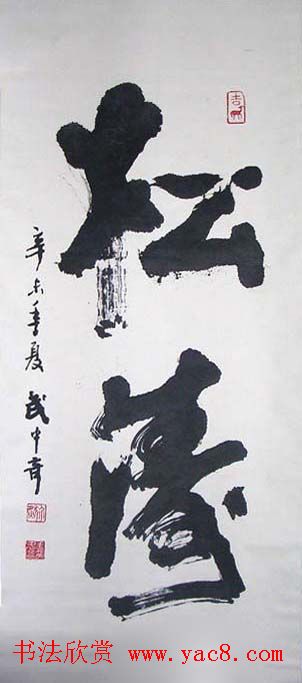 松涛
辛未年夏 武中奇
书法欣赏 www.yac8.com